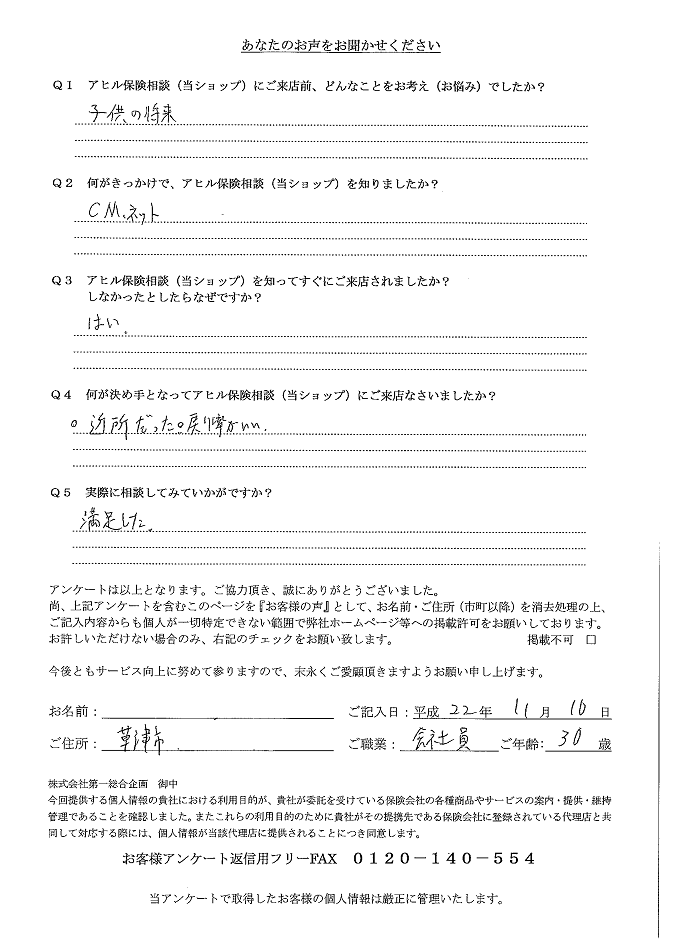 あなたのお声をお聞かせください
Q1 アヒル保険相談（当ショップ）にご来店前、どんなことをお考え（お悩み）でしたか？
子供の将来
Q2 何がきっかけで、アヒル保険相談（当ショップ）を知りましたか？
CM、ネット
Q3 アヒル保険相談（当ショップ）を知ってすぐにご来店されましたか？
しなかったとしたらなぜですか？
はい。
Q4 何が決め手となってアヒル保険相談（当ショップ）にご来店なさいましたか？
近所だった。戻り率がいい。
Q5 実際に相談してみていかがですか？
満足した。
アンケートは以上となります。ご協力頂き、誠にありがとうございました。
尚、上記アンケートを含むこのページを『お客様の声』として、お名前・ご住所（市町以降）を消去処理の上、
ご記入内容からも個人が一切特定できない範囲で弊社ホームページ等への掲載許可をお願いしております。
お許しいただけない場合のみ、右記のチェックをお願い致します。 掲載不可 □
今後ともサービス向上に努めて参りますので、末永くご愛顧頂きますようお願い申し上げます。
お名前： ご記入日：平成 22年 11月 10日
ご住所： 草津市 ご職業： 会社員 ご年齢： 30 歳
株式会社第一総合企画 御中
今回提供する個人情報の貴社における利用目的が、貴社が委託を受けている保険会社の各種商品やサービスの案内・提供・維持
管理であることを確認しました。またこれらの利用目的のために貴社がその提携先である保険会社に登録されている代理店と共
同して対応する際には、個人情報が当該代理店に提供されることにつき同意します。
お客様アンケート返信用フリーFAX 0120－140－554
当アンケートで取得したお客様の個人情報は厳正に管理いたします。